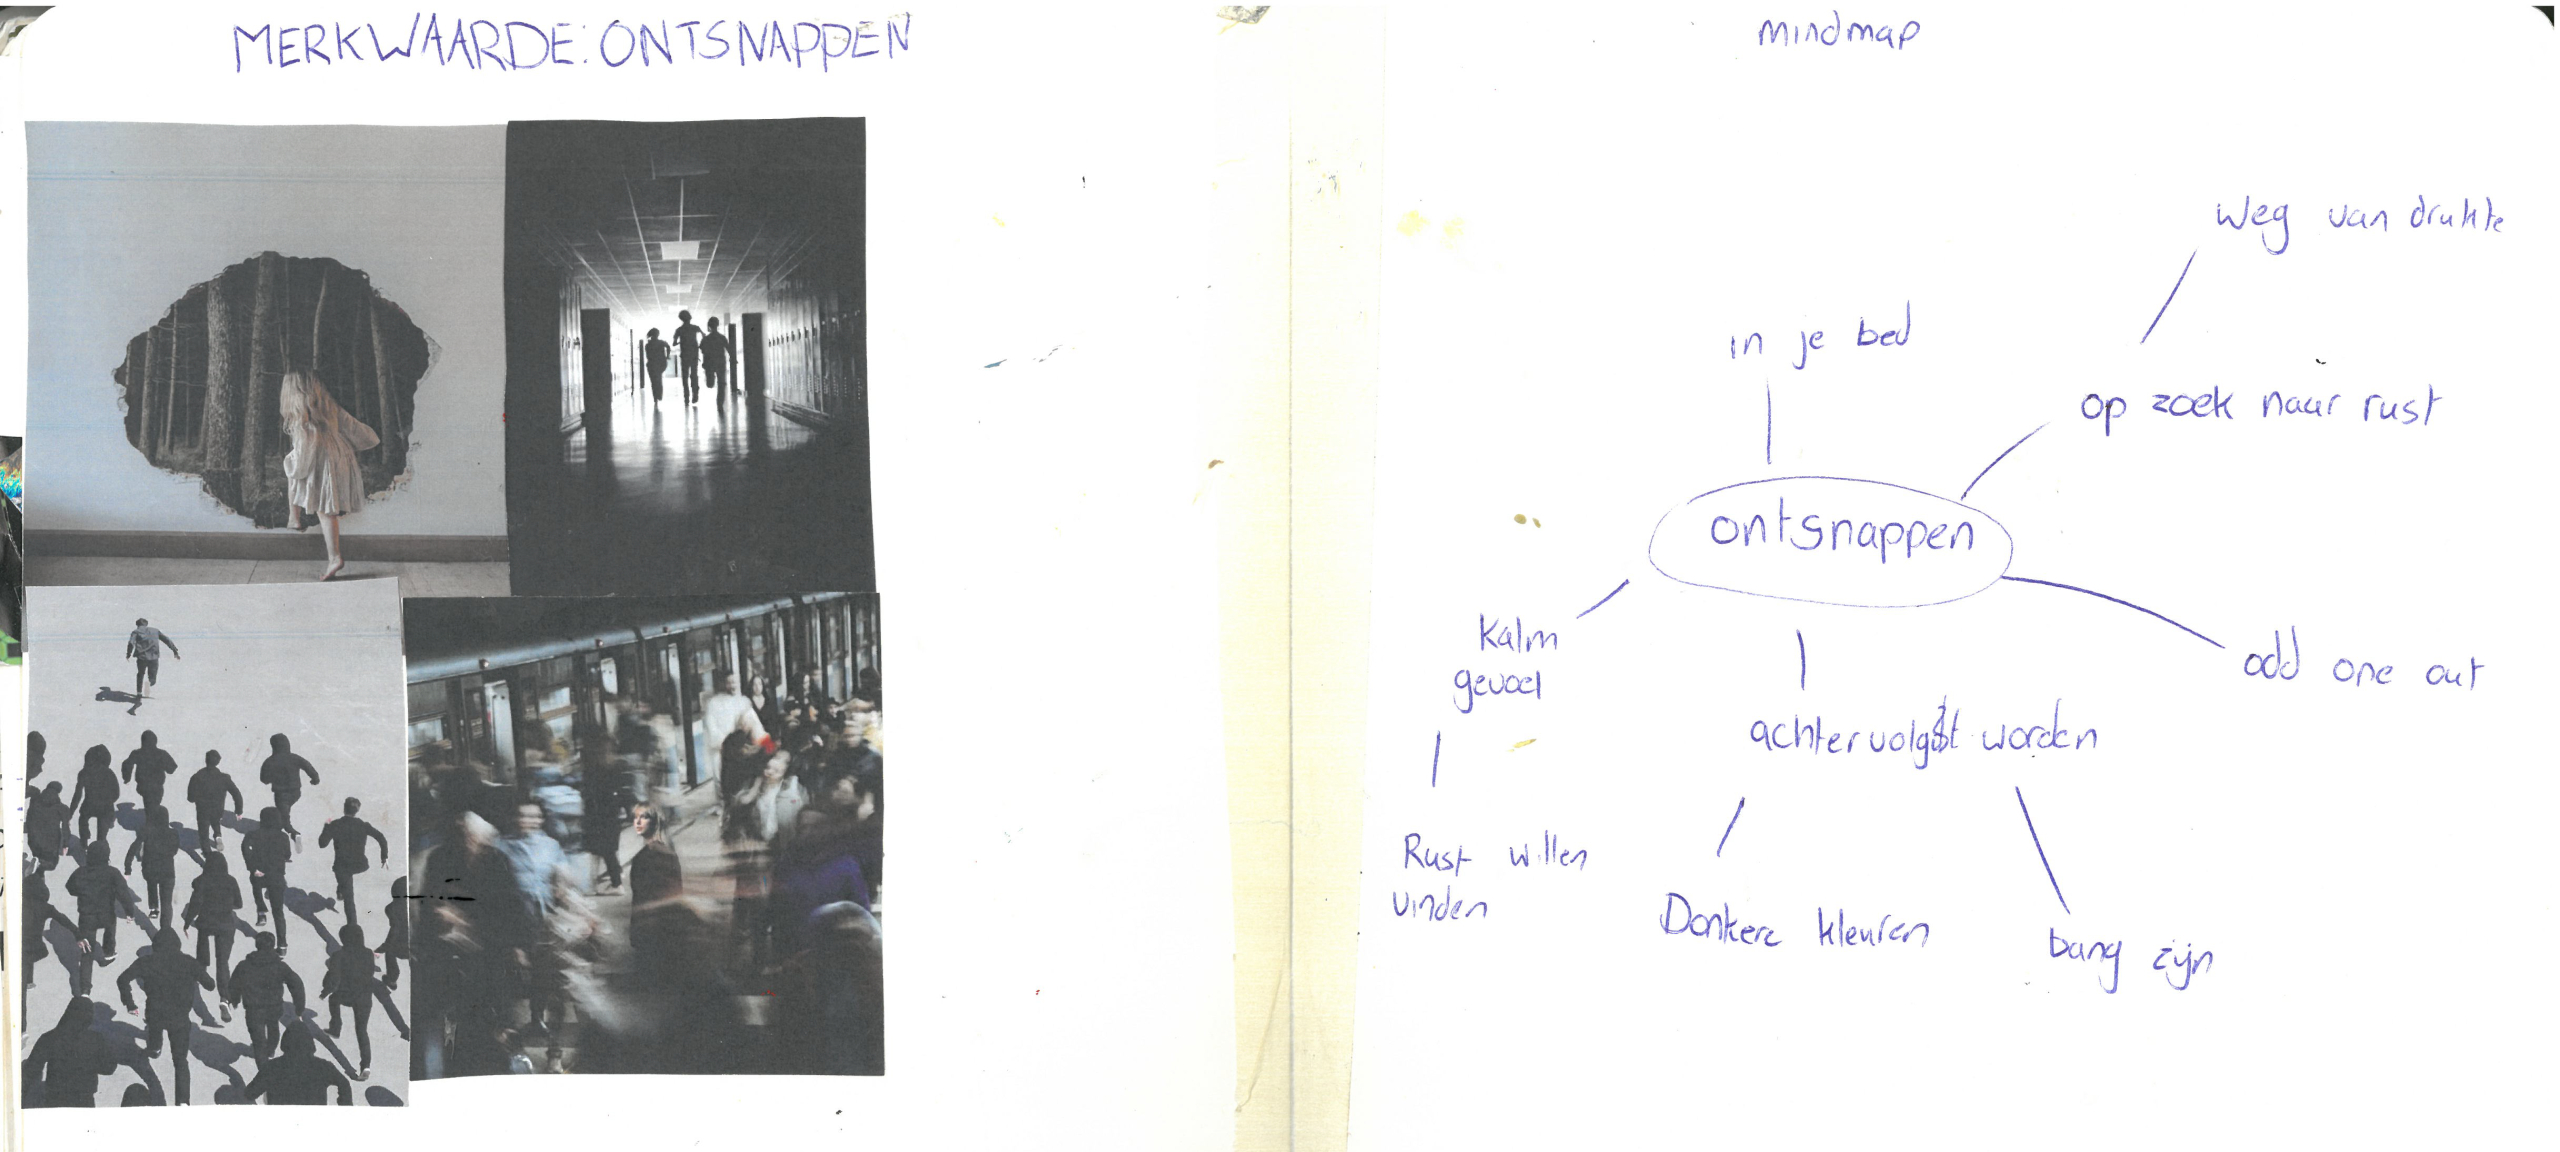 MERKWAARDE: ONTSNAPPEN
mindmap
weg van drukte
in je bed
op zoek naar rust
ontsnappen
Kalm
gevoel
odd one out
achtervolgt worden
Rust willen
vinden
Donkere kleuren
bang zijn